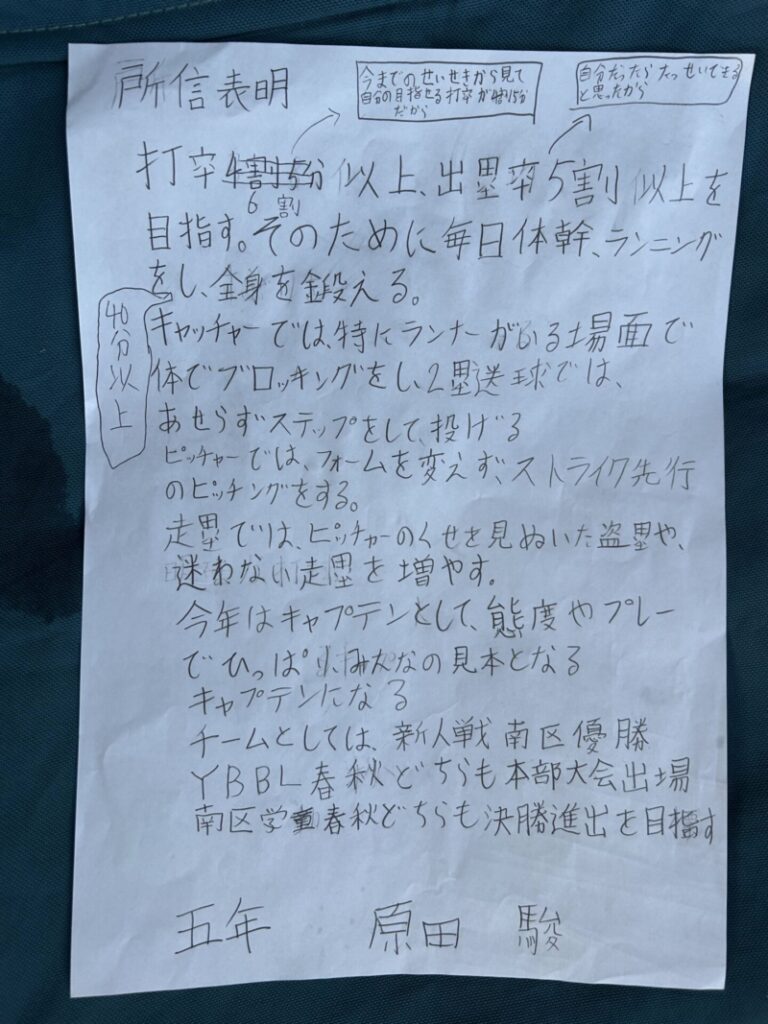 所信表明
今までのせいせきから見て
自分の目指せる打率が4割5分
だから
自分だったらたっせいできる
と思ったから
打率4割5分似上、出塁率5割似上を
6割
目指す。そのために毎日体幹、ランニング
をし、全身を鍛える。
40分以上
キャッチャーでは、特にランナーがいる場面で
体でブロッキングをし、2塁送球では、
あせらずステップをして、投げる
ピッチャーでは、フォームを変えず、ストライク先行
のピッチングをする。
走塁では、ピッチャーのくせを見ぬいた盗塁や、
迷わない走塁を増やす。
今年はキャプテンとして、態度やプレー
でひっぱり、みんなの見本となる
キャプテンになる
チームとしては、新人戦南区優勝
YBBL春秋どちらも本部大会出場
南区学童春秋どちらも決勝進出を目指す
五年 原田 駿